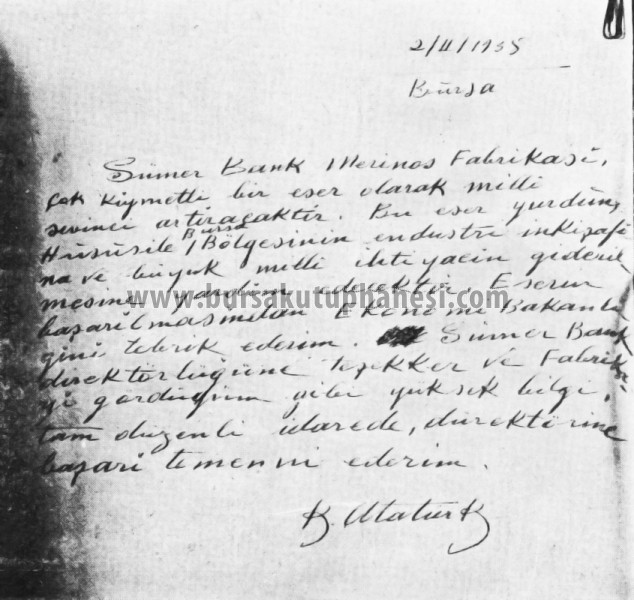 2/II/1935
Bursa
Sümer Bank Merinos Fabrikasi,
çok kiymetli bir eser olarak milli
sevinci artiracaktir. Bu eser yurdun,
Hususile Bursa Bölgesinin endustri inkişafi
na ve büyük milli ihtiyacin gideril
mesine yardim edecektir Eserin
başarilmasindan Ekonomi Bakanli
ğini tebrik ederim. Sümer Bank
direktörlüğüne teşekker ve Fabrika
yi gördüğüm gibi yüksek bilgi,
tam düzenli idarede, direktörüne
başari temenni ederim.
K. Atatürk
www.bursakutuphanesi.com